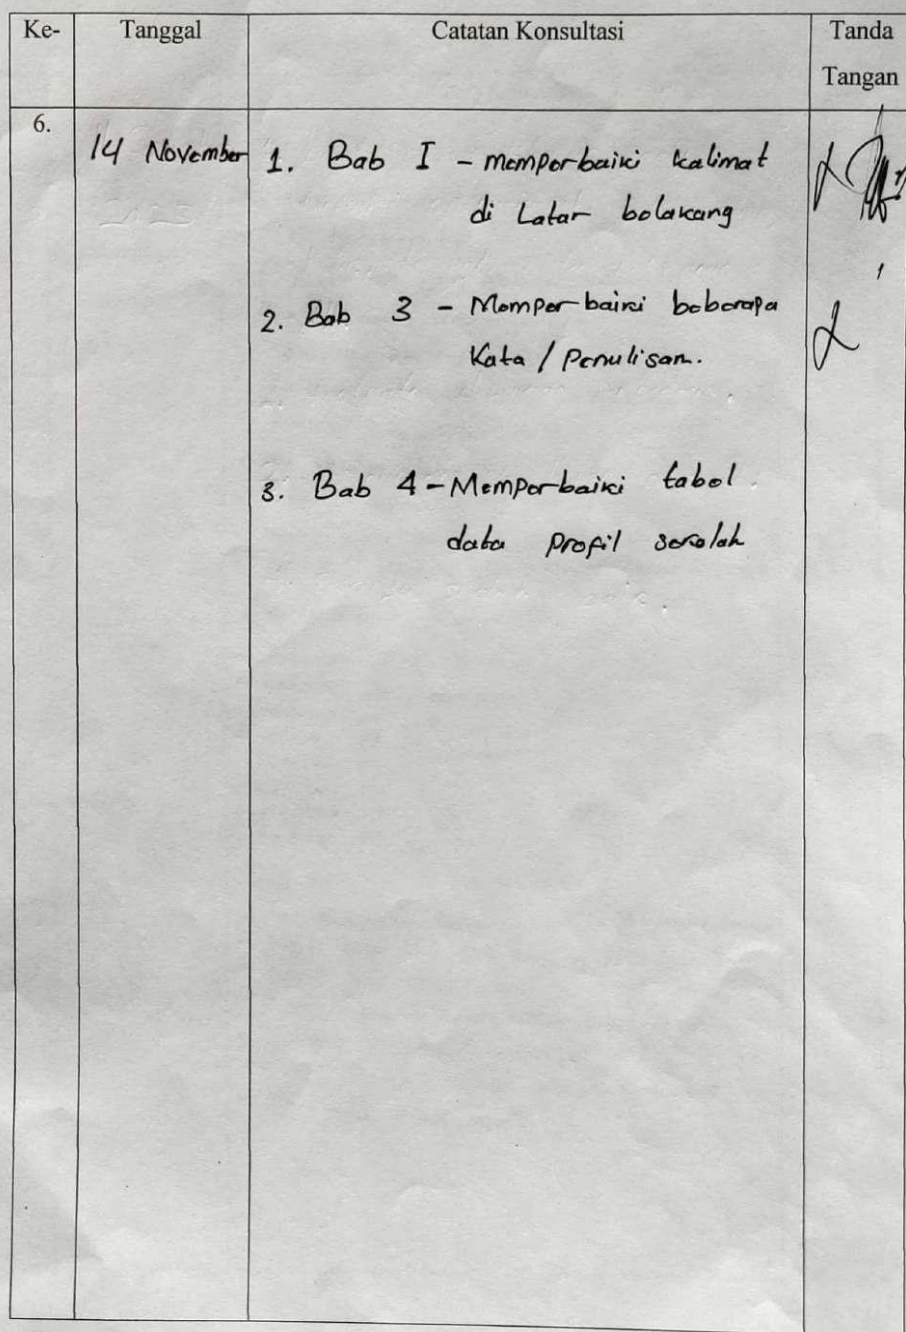 Ke- Tanggal Catatan Konsultasi Tanda
Tangan
6.
14 November 1. Bab I - memperbaiki kalimat
di Latar belakang
2. Bab 3 - Memperbaiki beberapa
Kata / Penulisan.
3. Bab 4 - Memperbaiki tabel
data Profil sekolah